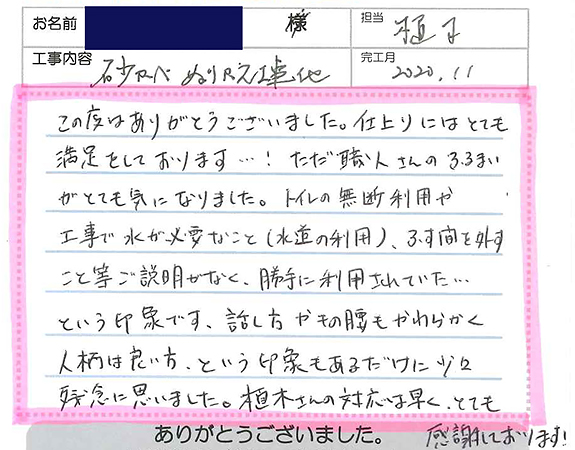 お名前 様 担当 植木
工事内容 砂カベ ぬりかえ工事他 完工月 2020.11
この度はありがとうございました。仕上りにはとても
満足をしております…！ただ職人さんのふるまい
がとても気になりました。トイレの無断利用や
工事で水が必要なこと（水道の利用）、ふす間を外す
こと等ご説明がなく、勝手に利用されていた…
という印象です、話し方やもの腰もやわらかく
人柄は良い方、という印象もあるだけに少々
残念に思いました。植木さんの対応は早く、とても
ありがとうございました。 感謝しております!